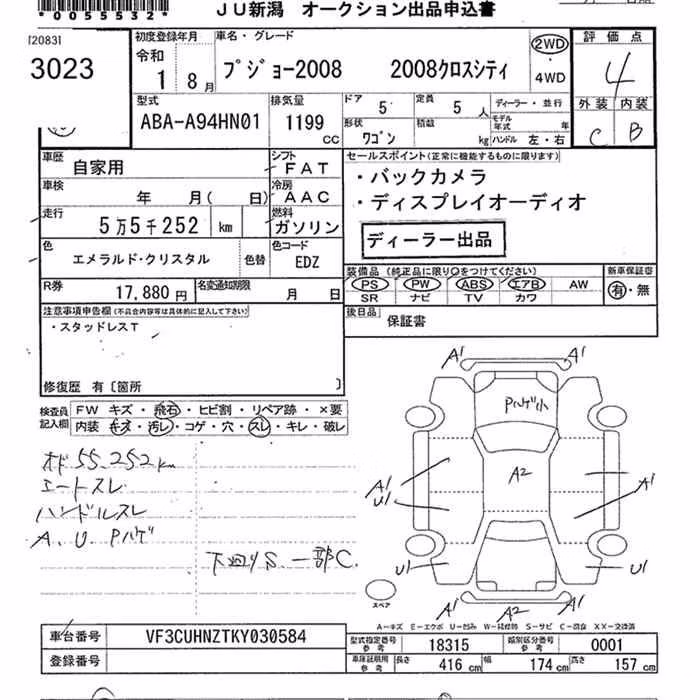 *0055532*
JU新潟 オークション出品申込書
[2083]
3023
初度登録年月
令和
1 8月
車名・グレード
プジョー2008 2008クロスシティ
2WD
・
4WD
評価点
4
外装 内装
C B
型式
ABA-A94HN01
排気量
1199
CC
ドア 5
定員 5 人
ディーラー・並行
形状
ワゴン
積載
kg
モデル年式 年
ハンドル 左・右
車歴
自家用
シフト
FAT
車検
年 月( 日)
冷房
AAC
走行
5万5千252 km
燃料
ガソリン
色
エメラルド・クリスタル
色替
色コード
EDZ
R券
17,880円
名変通知期限
月 日
セールスポイント(正常に機能するものに限ります)
・バックカメラ
・ディスプレイオーディオ
ディーラー出品
装備品(純正品に限り○をつけてください)
新車保証書
PS PW ABS エアB AW
SR ナビ TV カワ
有・無
注意事項申告欄(不具合内容等は具体的に記入して下さい)
・スタッドレスT
修復歴 有〔箇所 〕
後日品
保証書
検査員
記入欄
FW キズ・飛石・ヒビ割・リペア跡・×要
内装 キズ・汚レ・コゲ・穴・スレ・キレ・破レ
オド 55,252km
シートスレ
ハンドルスレ
A、U、Pハゲ
下廻りS 一部C
A1 A1
Pハゲ小
A2
A1
U1
A1
U1 U1
A1 A2 A1
スペア
A-キズ E-エクボ U-凹み W-補修跡 S-サビ C-腐食 XX-交換済
車台番号
VF3CUHNZTKY030584
登録番号
型式指定番号
参考
18315
類別区分番号
参考
0001
車庫証明用
参考
長さ 416 cm 幅 174 cm 高さ 157 cm